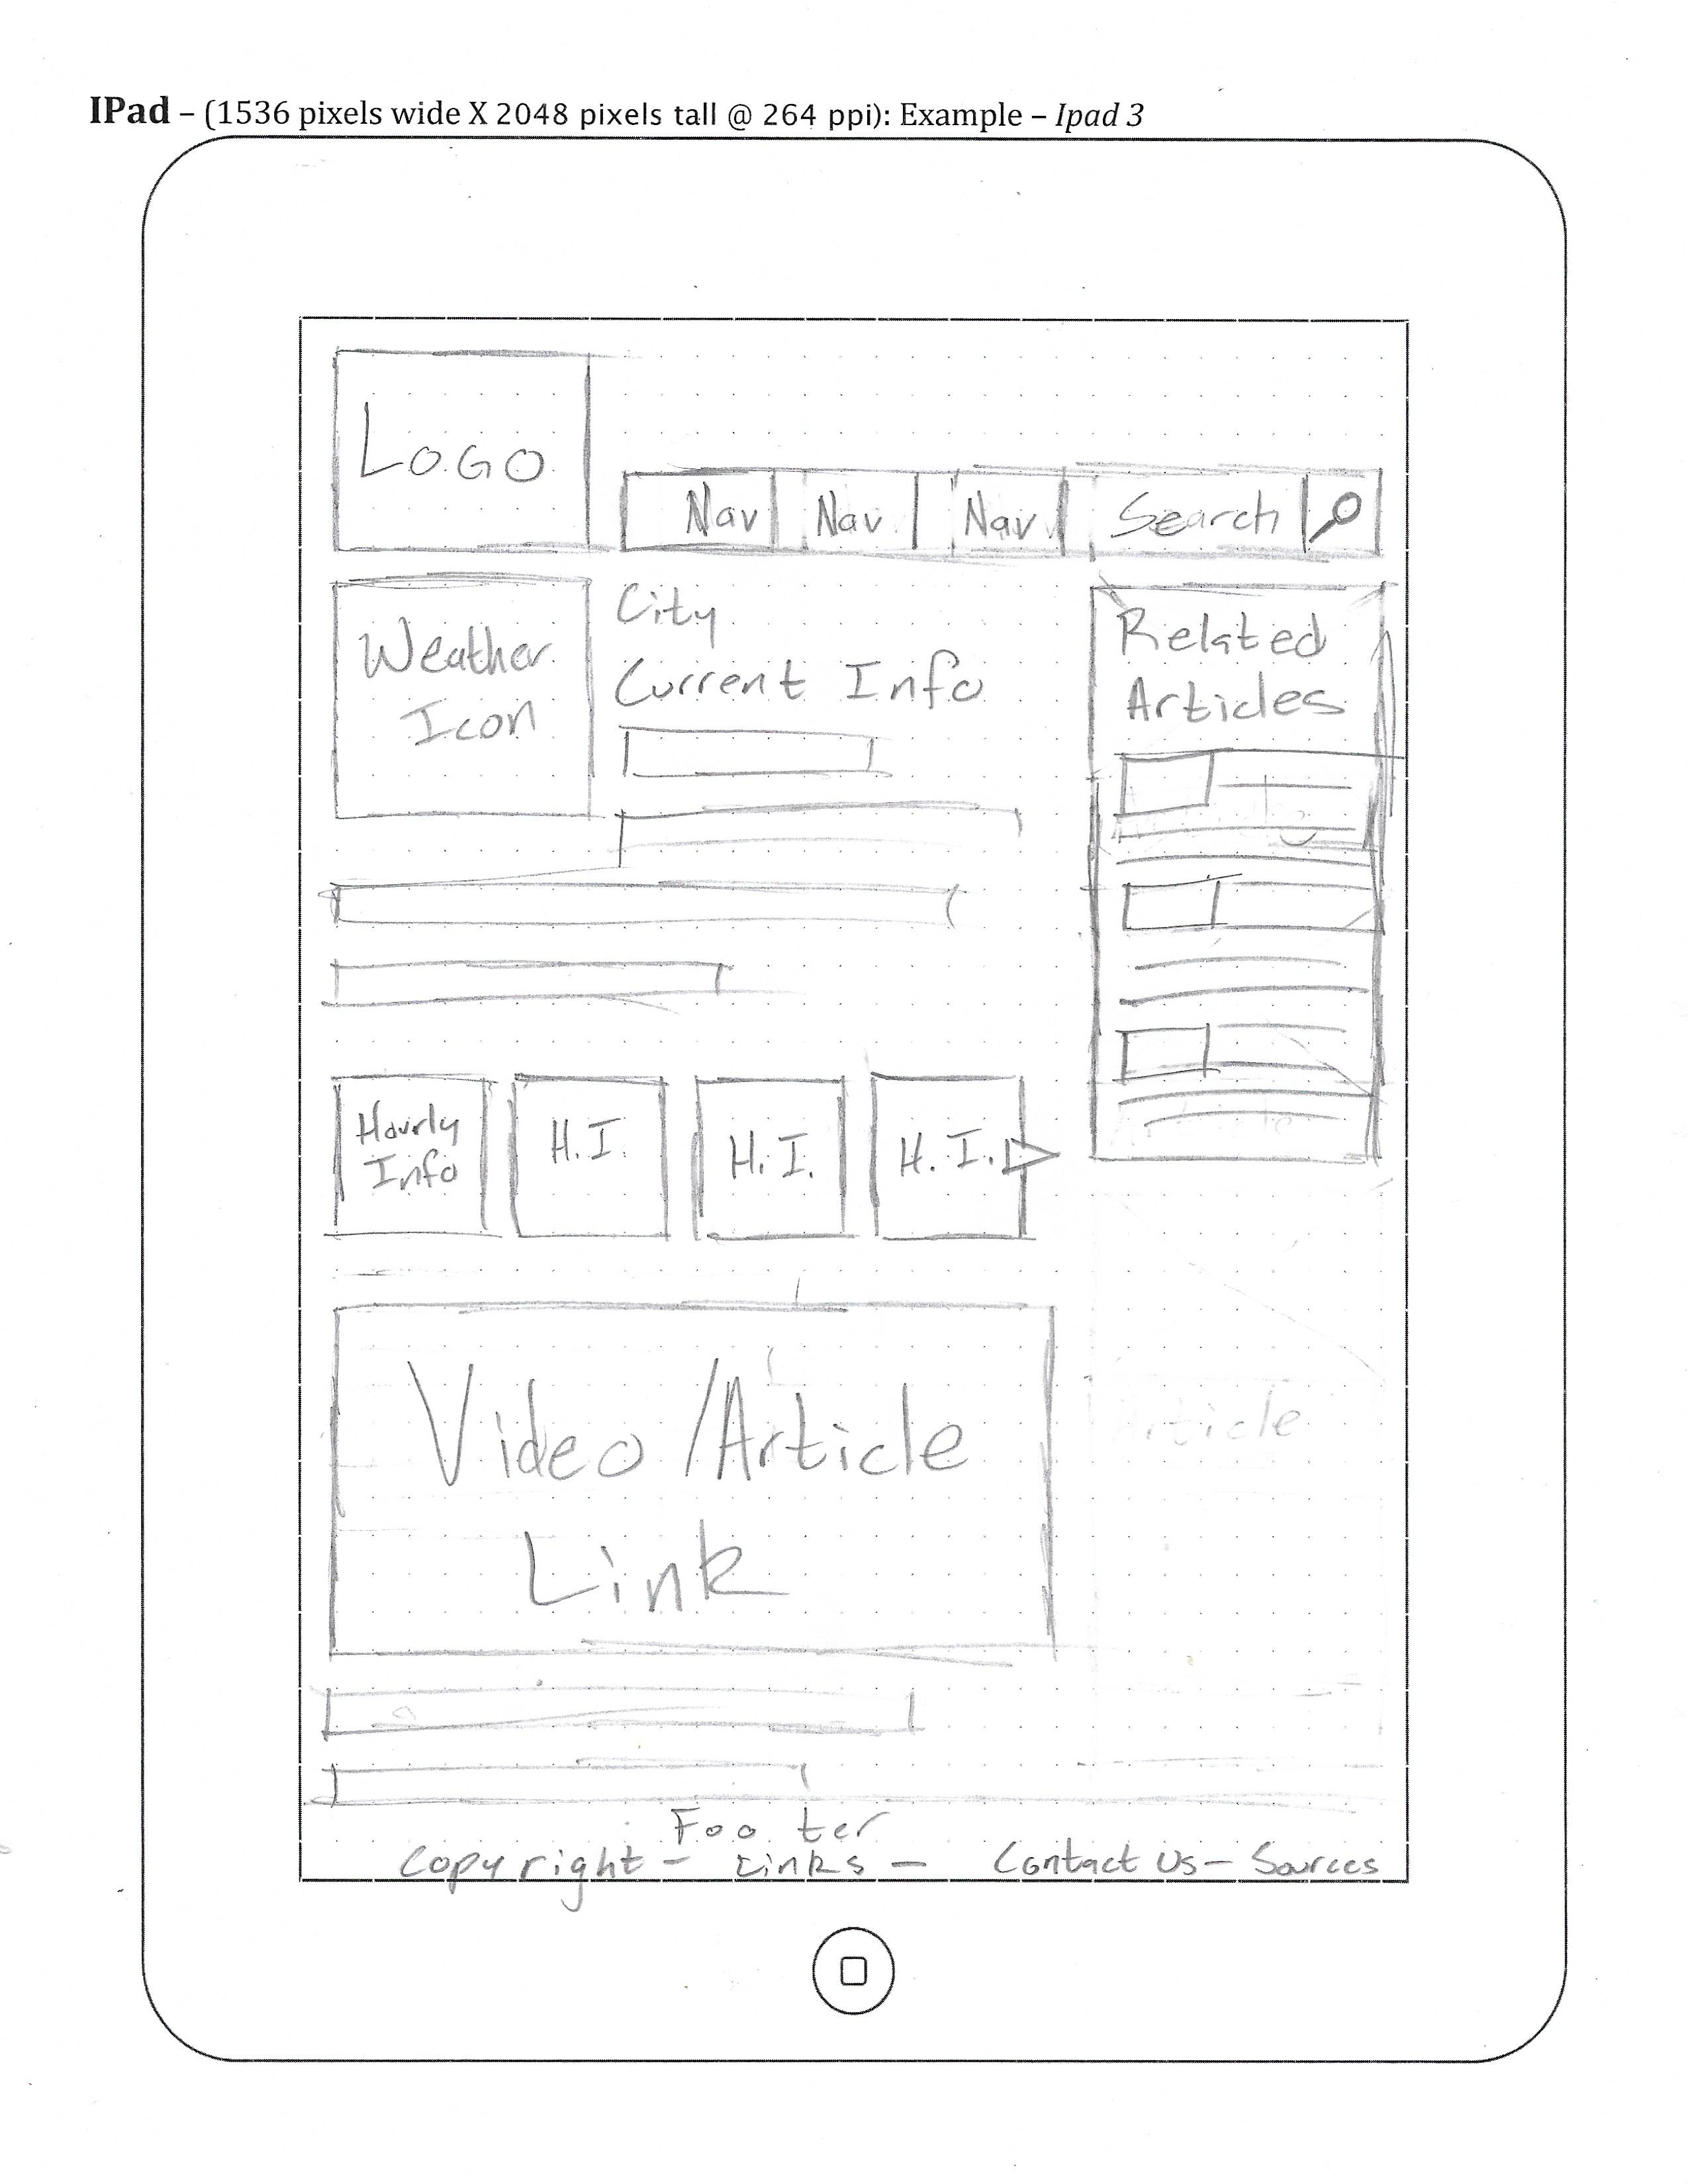 IPad – (1536 pixels wide X 2048 pixels tall @ 264 ppi): Example – Ipad 3
LOGO
Nav Nav Nav Search
Weather
Icon
City
Current Info
Related
Articles
Hourly
Info
H.I.
H.I.
H.I.
Video/Article
Link
Article
Footer
Copyright – Links – Contact Us – Sources